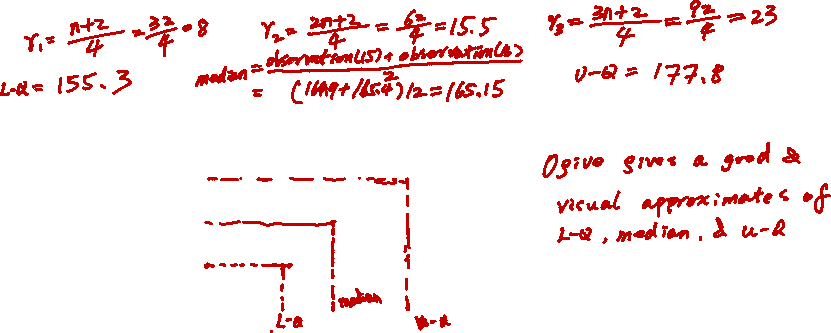 r₁ = (n+2)/4 = 32/4 = 8
L-Q = 155.3
r₂ = (2n+2)/4 = 62/4 = 15.5
median = (observation(15) + observation(16))/2
= (164.9 + 165.4)/2 = 165.15
r₃ = (3n+2)/4 = 92/4 = 23
U-Q = 177.8
Ogive gives a good &
visual approximates of
L-Q, median, & u-Q
median
L-Q
u-Q